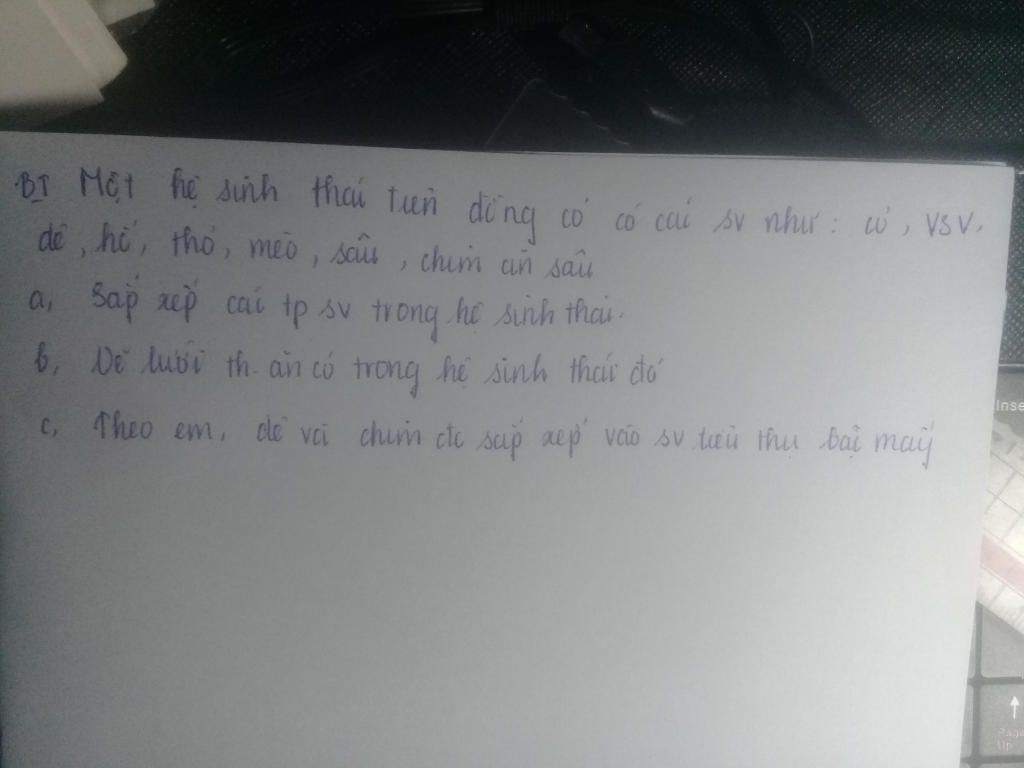 BT Một hệ sinh thái trên đồng cỏ có các sv như: cỏ, VSV,
dê, hổ, thỏ, mèo, sâu, chim ăn sâu
a, Sắp xếp các tp sv trong hệ sinh thái.
b, Vẽ lưới th. ăn có trong hệ sinh thái đó
c, Theo em, dê và chim đc sắp xếp vào sv tiêu thụ bậc mấy
Inse
Page
Up